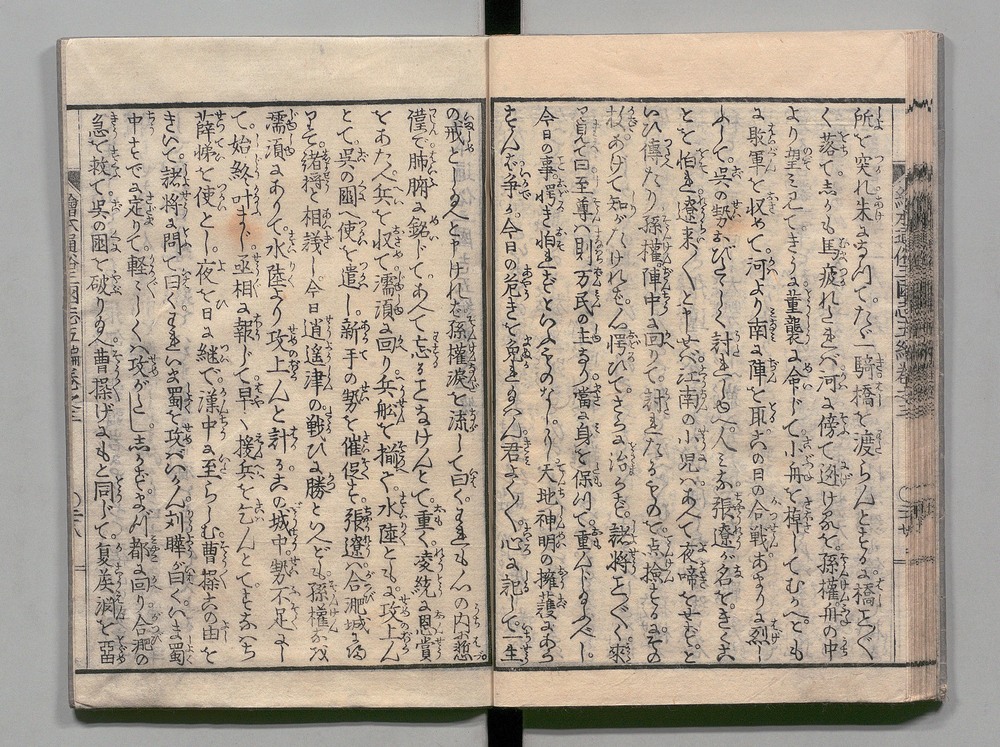 所を突れ朱になつてたゞ一騎橋を渡らんとするに橋こと〴〵
く落てしかも馬疲れたれバ河に傍て逃けるを孫權舟の中
より望ミ見てきうに董襲に命じて小舟を棹してむかへとも
に敗軍を収めて河より南に陣を取此の日の合戦あまりに烈し
ふして呉の勢おびたゝしく討れしも人ミな張遼が名をきく
とを怕れ遼来〳〵と申せバ江南の小児ハあへて夜啼をせずと
いひ傳たり孫權陣中に回りて討れたるものを点撿するにその
あげて知がたけれバ愕ひてさらに治らず諸將こと〴〵く來
て曰至尊ハ則万民の主なり當に身を保つて重んじ給ふべし
今日の事愕き怕れずといふものなしより天地神明の擁護にあら
ずんバ争か今日の危きを免れ給ハん君よく〳〵心に記して一生
の戒とし給へと申けれバ孫權涙を流して曰くそれかしの内に慙
謹で肺腑に銘じてあへて忘るゝことなけんとて重く凌統に恩賞
をあたへ兵を収て濡須に回り兵舩を揃へ水陸ともに攻上らん
とて呉の國へ使を遣し新手の勢を催促す張遼ハ合淝城に
ありて諸將と相議し今日逍遥津の戦ひに勝といへども孫權な
濡須にありて水陸より攻上んと計る此の城中勢不足にし
て始終叶まじ丞相に報じて早く援兵を乞んとてすなハち
薛悌を使とし夜を日に継で漢中に至らしむ曹操此の由を
きいて諸將に問て曰くわれいま蜀を攻べけんか刘曄が曰くいま蜀
中すでに定りて輕〳〵しくハ攻がたししかじまづ都に回り合淝の
急を救て呉の國を破り給へ曹操げにもと同じて夏矦淵を留
繪本通俗三國志五編卷之三